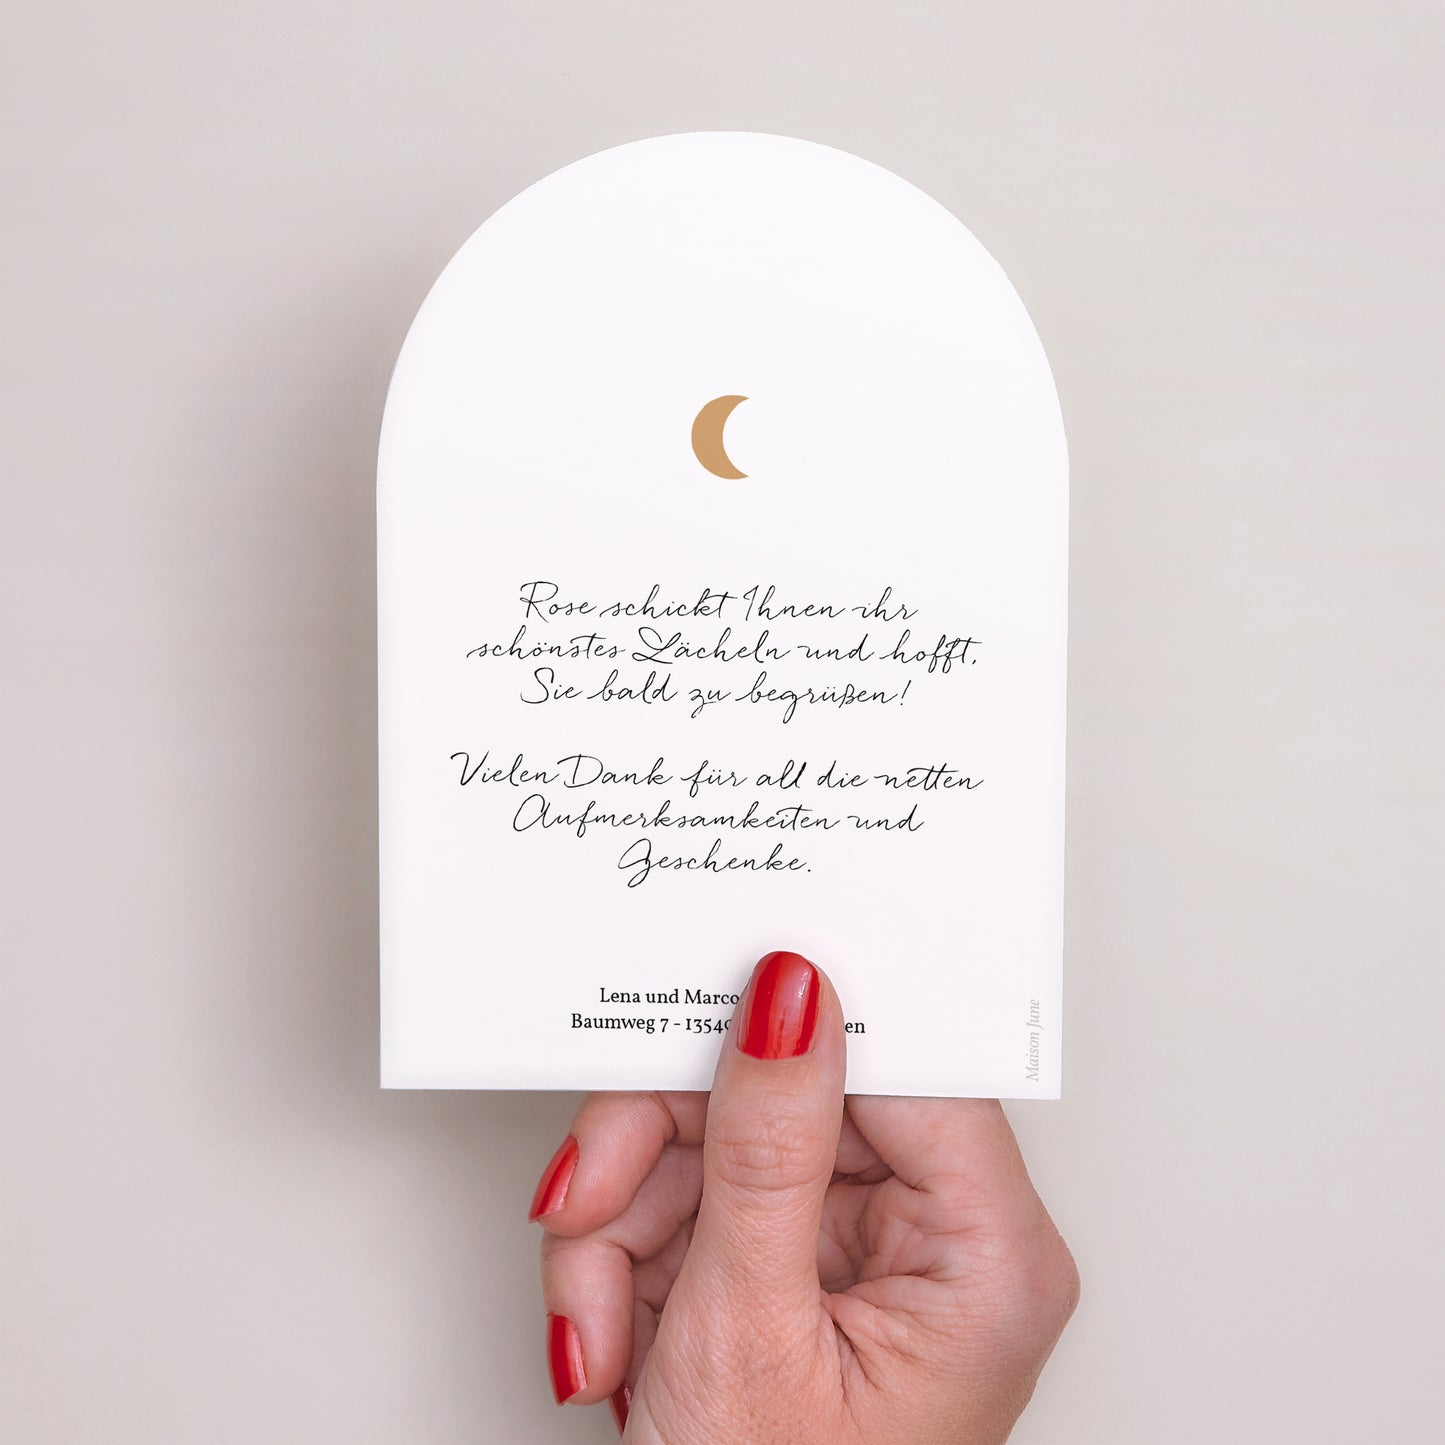 Rose schickt Ihnen ihr
schönstes Lächeln und hofft,
Sie bald zu begrüßen!
Vielen Dank für all die netten
Aufmerksamkeiten und
Geschenke.
Lena und Marco
Baumweg 7 - 1354
Maison June